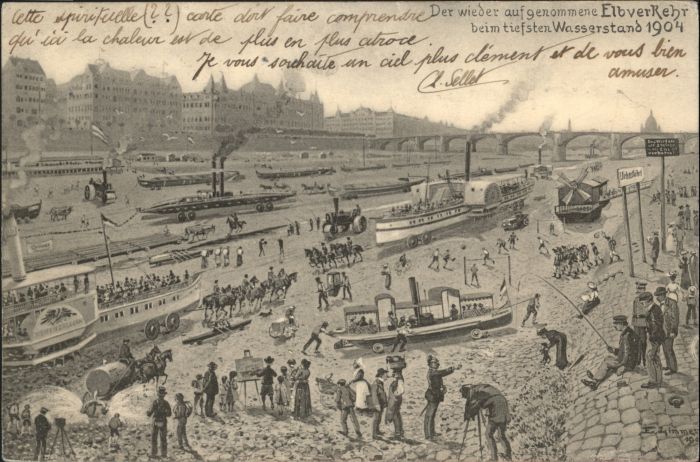 Cette spirituelle (??) carte doit faire comprendre
qu'ici la chaleur est de plus en plus atroce.
Je vous souhaite un ciel plus clément et de vous bien
amuser.
Der wieder aufgenommene Elbverkehr
beim tiefsten Wasserstand 1904